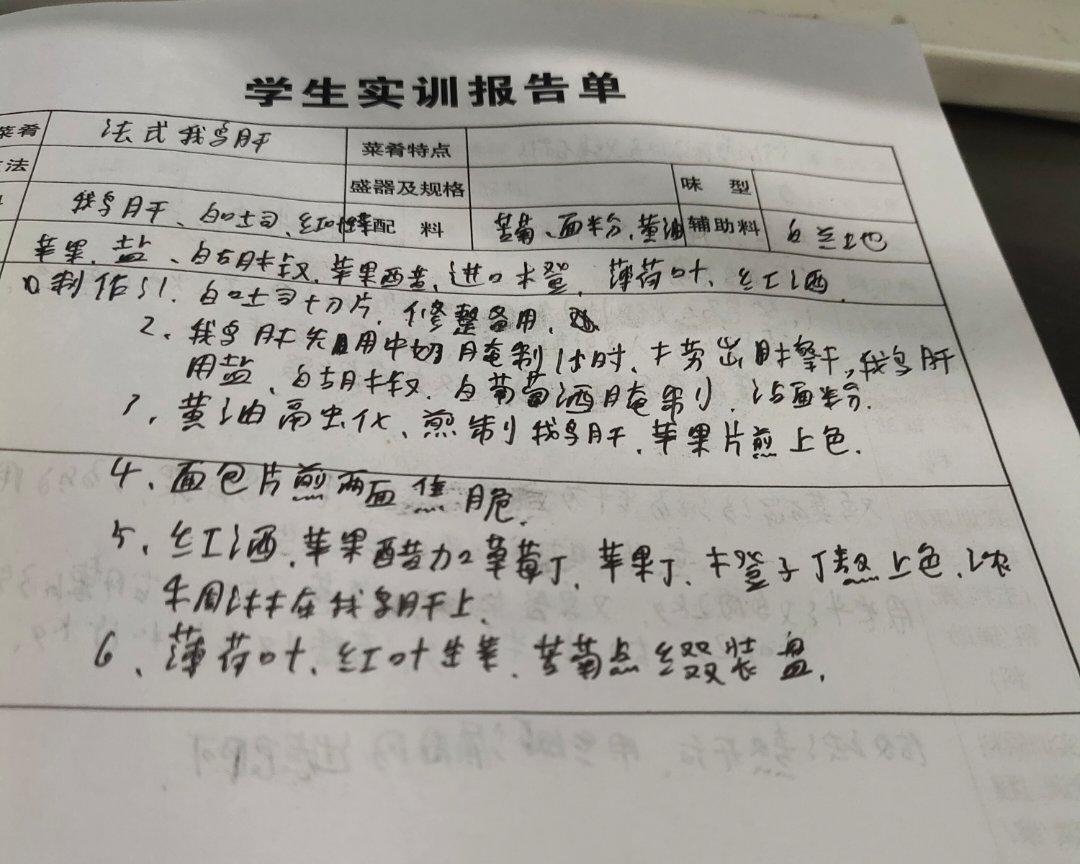 学生实训报告单
菜肴 法式鹅肝 菜肴特点
法 盛器及规格 味型
鹅肝、白吐司、红叶生菜 配料 苦菊、面粉、黄油 辅助料 白兰地
苹果、盐、白胡椒、苹果西煮、进口木登、薄荷叶、红酒
制作：1、白吐司切片、修整备用、
2、鹅肝先用中奶腌制1小时、去除肝擎干、鹅肝
用盐、白胡椒、白葡萄酒腌制、沾面粉.
3、黄油融化、煎制鹅肝、苹果片煎上色.
4、面包片煎两面焦脆.
5、红酒、苹果醋加草莓丁、苹果丁、橙子丁熬上色、浓
稠汁在鹅肝上.
6、薄荷叶、红叶生菜、苦菊点缀装盘.